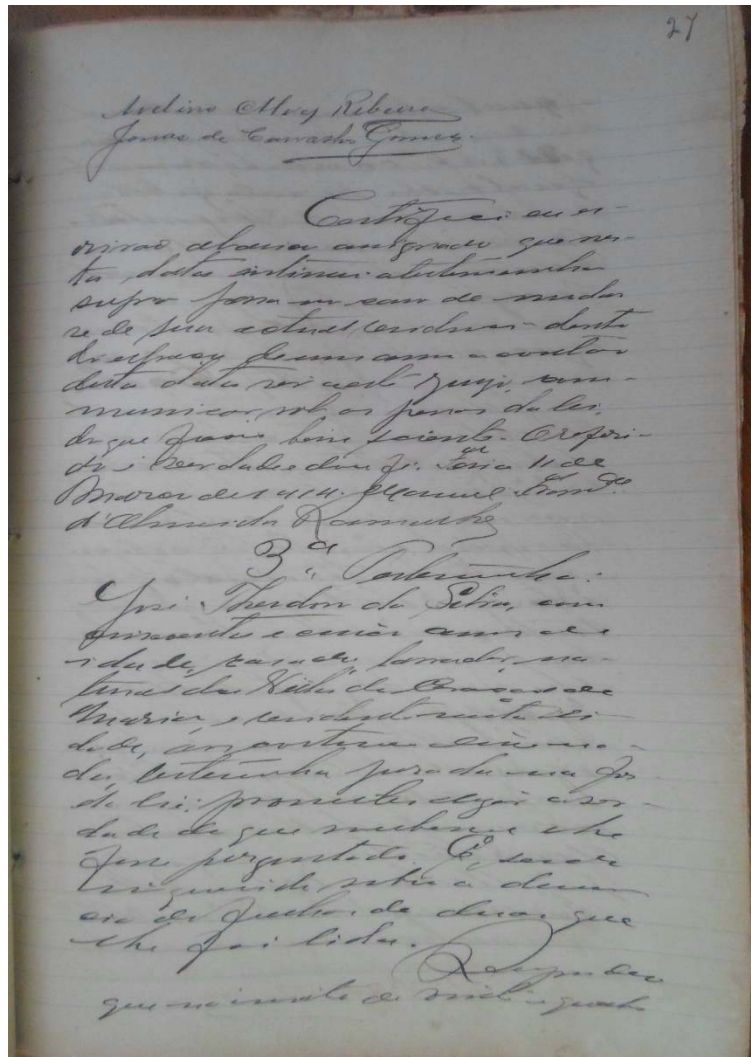 27
Avelino Alves Ribeiro
Jonas de Carvalho Gomes
Certifico eu es-
crivão abaixo assignado que nes-
ta data intimei a testemunha
supra para no caso de mudar
se de sua actual residencia dentro
do espaço de um anno a contar
desta data vir a este Juizo com-
municar, sob as penas da lei,
do que ficou bem sciente. O referi-
do é verdade e dou fé. 11 de
Março de 1914. Manuel
d'Almeida
3ª Testemunha:
José Theodoro da Silva, com
cincoenta e cinco annos de
idade, casado, lavrador, na-
tural da Villa do Coração de
Maria, e residente nesta ci-
dade, aos costumes disse na-
da, testemunha jurada na for-
ma da lei: prometteu dizer a ver-
dade do que soubesse e lhe
fosse perguntado. E, sendo
inquirida sobre a denun-
cia de folhas de duas que
lhe foi lida.
Respondeu
que na noite de vinte e quatro